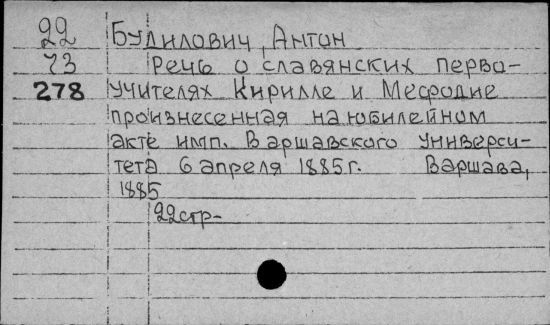 22 Будилович, Антон
73 Речь о славянских перво-
278 учителях Кирилле и Мефодие
произнесенная на юбилейном
акте имп. Варшавского универси-
тета 6 апреля 1885г. Варшава,
1885
22стр-